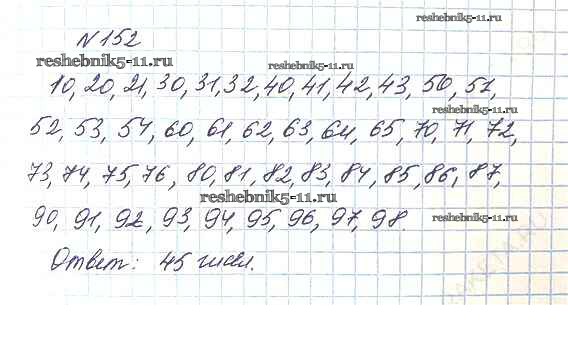 reshebnik5-11.ru
N 152
reshebnik5-11.ru
reshebnik5-11.ru
10, 20, 21, 30, 31, 32, 40, 41, 42, 43, 50, 51,
reshebnik5-11.ru
52, 53, 54, 60, 61, 62, 63, 64, 65, 70, 71, 72,
73, 74, 75, 76, 80, 81, 82, 83, 84, 85, 86, 87,
reshebnik5-11.ru
90, 91, 92, 93, 94, 95, 96, 97, 98
reshebnik5-11.ru
Ответ: 45 чисел.